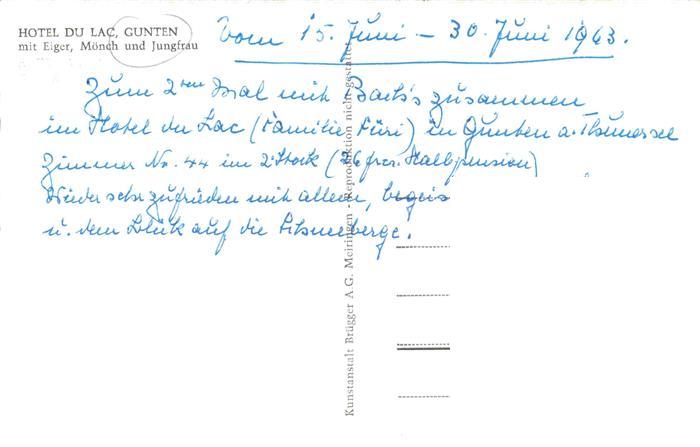 HOTEL DU LAC, GUNTEN
mit Eiger, Mönch und Jungfrau
Vom 15. Juni – 30. Juni 1963.
Zum 2ten Mal mit zusammen
im Hotel du Lac (Familie Füri) in Gunten a. Thunersee
Zimmer No. 44 im 2. Stock (26 frcs. Halbpension)
Wieder sehr zufrieden mit allem, begeis
u. dem Blick auf die Schneeberge.
Kunstanstalt Brügger A.G. Meiringen Reproduktion nicht gestattet